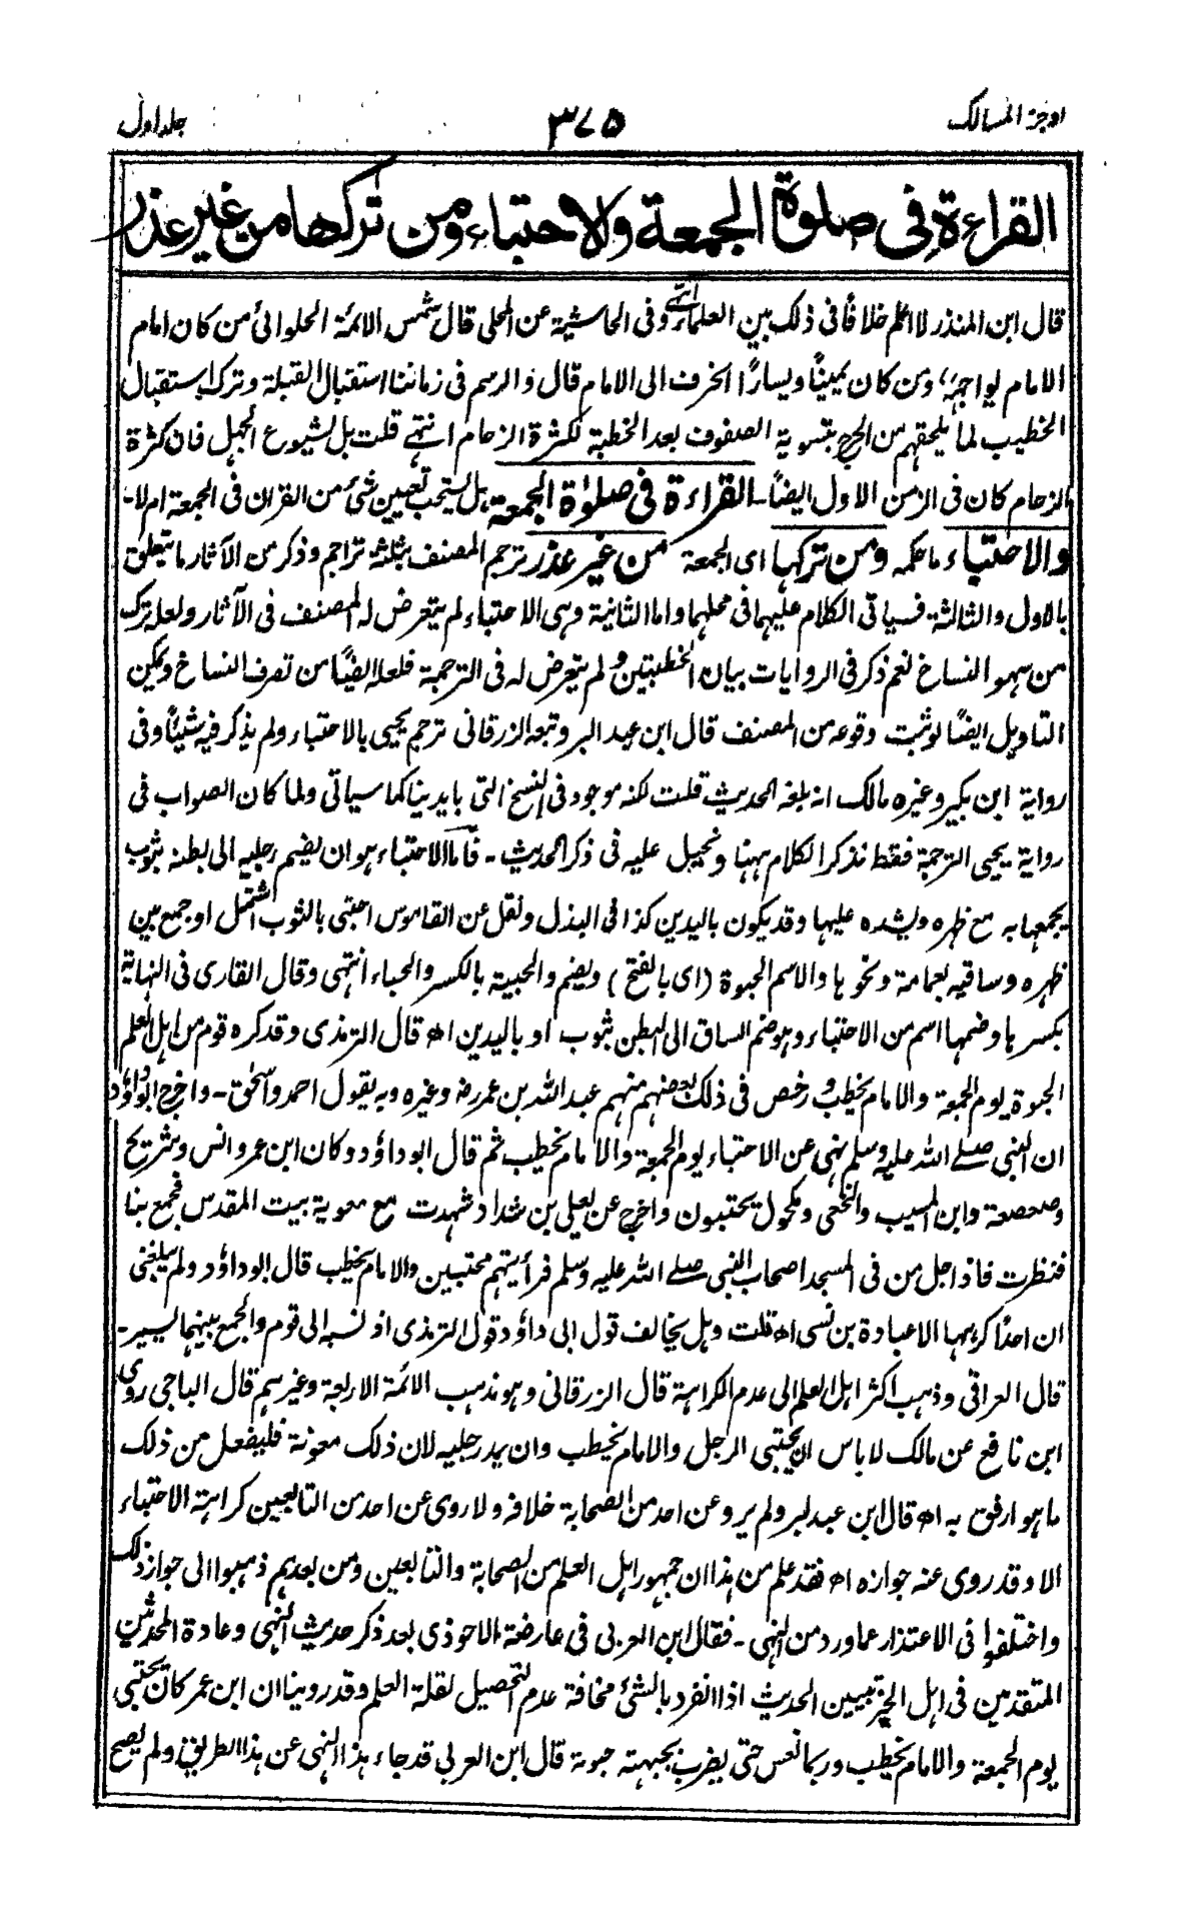 اوجز المسالك
٣٧٥
جلد اول
القراءة فى صلوة الجمعة والاحتباء ومن تركها من غير عذر
قال ابن المنذر لا اعلم خلافًا فى ذلك بين العلماء انتهى وفى الحاشية عن المحلى قال شمس الائمة الحلوائى من كان امام
الامام يواجهه ومن كان يمينًا ويسارًا انحرف الى الامام قال والرسم فى زماننا استقبال القبلة وترك استقبال
الخطيب لما يلحقهم من الحرج بتسوية الصفوف بعد الخطبة لكثرة الزحام انتهى قلت بل لشيوع الجهل فان كثرة
الزحام كان فى الزمن الاول ايضًا۔ القراءة فى صلوٰة الجمعة هل يستحب تعيين شئ من القران فى الجمعة ام لا۔
والاحتباء ما حكمه ومن تركها اى الجمعة من غير عذر ترجم المصنف بثلثة تراجم وذكر من الآثار ما يتعلق
بالاول والثالثة فسياتى الكلام عليهما فى محلهما واما الثانية وهى الاحتباء لم يتعرض له المصنف فى الآثار ولعله ترك
من سهو النساخ نعم ذكر فى الروايات بيان الخطبتين ولم يتعرض له فى الترجمة فلعله ايضًا من تصرف النساخ ويمكن
التاويل ايضًا لو ثبت وقوعه من المصنف قال ابن عبد البر وتبعه الزرقانى ترجم يحيى بالاحتباء ولم يذكر فيه شيئًا وفى
رواية ابن بكير وغيره مالك انه بلغه الحديث قلت لكنه موجود فى النسخ التى بايدينا كما سياتى ولما كان الصواب فى
رواية يحيى الترجمة فقط نذكر الكلام ههنا ونحيل عليه فى ذكر الحديث۔ فأما الاحتباء هو ان يضم رجليه الى بطنه بثوب
يجمعها به مع ظهره ويشده عليها وقد يكون باليدين كذا فى البذل ونقل عن القاموس احتبى بالثوب اشتمل او جمع بين
ظهره وساقيه بعمامة ونحوها والاسم الحبوة (اى بالفتح) ويضم والحبية بالكسر والحباء انتهى وقال القارى فى النهاية
بكسرها وضمها اسم من الاحتباء وهو ضم الساق الى البطن بثوب او باليدين اھ قال الترمذى وقد كره قوم من اهل العلم
الحبوة يوم الجمعة والامام يخطب ورخص فى ذلك بعضهم منهم عبد الله بن عمر رض وغيره وبه يقول احمد واسحٰق۔ واخرج ابو داؤد
ان النبى صلے الله عليه وسلم نهى عن الاحتباء يوم الجمعة والامام يخطب ثم قال ابو داؤد وكان ابن عمر وانس وشريح
وصعصعة وابن المسيب والنخعى ومكحول يحتبون واخرج عن يعلى بن شداد شهدت مع معوية بيت المقدس فجمع بنا
فنظرت فاذا جل من فى المسجد اصحاب النبى صلے الله عليه وسلم فرأيتهم محتبين والامام يخطب قال ابو داؤد ولم يبلغنى
ان احدًا كرهها الا عبادة بن نسى اھ قلت وهل يخالف قول ابى داؤد قول الترمذى اذ نسبه الى قوم والجمع بينهما يسير۔
قال العراقى وذهب اكثر اهل العلم الى عدم الكراهة قال الزرقانى وهو مذهب الائمة الاربعة وغيرهم قال الباجى روى
ابن نافع عن مالك لا باس ان يحتبى الرجل والامام يخطب وان يمد رجليه لان ذلك معونة فليفعل من ذلك
ما هو ارفق به اھ قال ابن عبد البر ولم يرو عن احد من الصحابة خلافه ولا روى عن احد من التابعين كراهة الاحتباء
الا وقد روى عنه جوازه اھ فقد علم من هذا ان جمهور اهل العلم من الصحابة والتابعين ومن بعدهم ذهبوا الى جواز ذلك
واختلفوا فى الاعتذار عما ورد من النهى۔ فقال ابن العربى فى عارضة الاحوذى بعد ذكر حديث النهى وعادة المحدثين
المتقدمين فى اهل الحديث اذا انفرد بالشئ مخافة عدم التحصيل لقلة العلم وقد روينا ان ابن عمر كان يحتبى
يوم الجمعة والامام يخطب وربما نعس حتى يضرب بجبهته حبوة قال ابن العربى قد جاء هذا النهى عن هذا الطريق ولم يصح